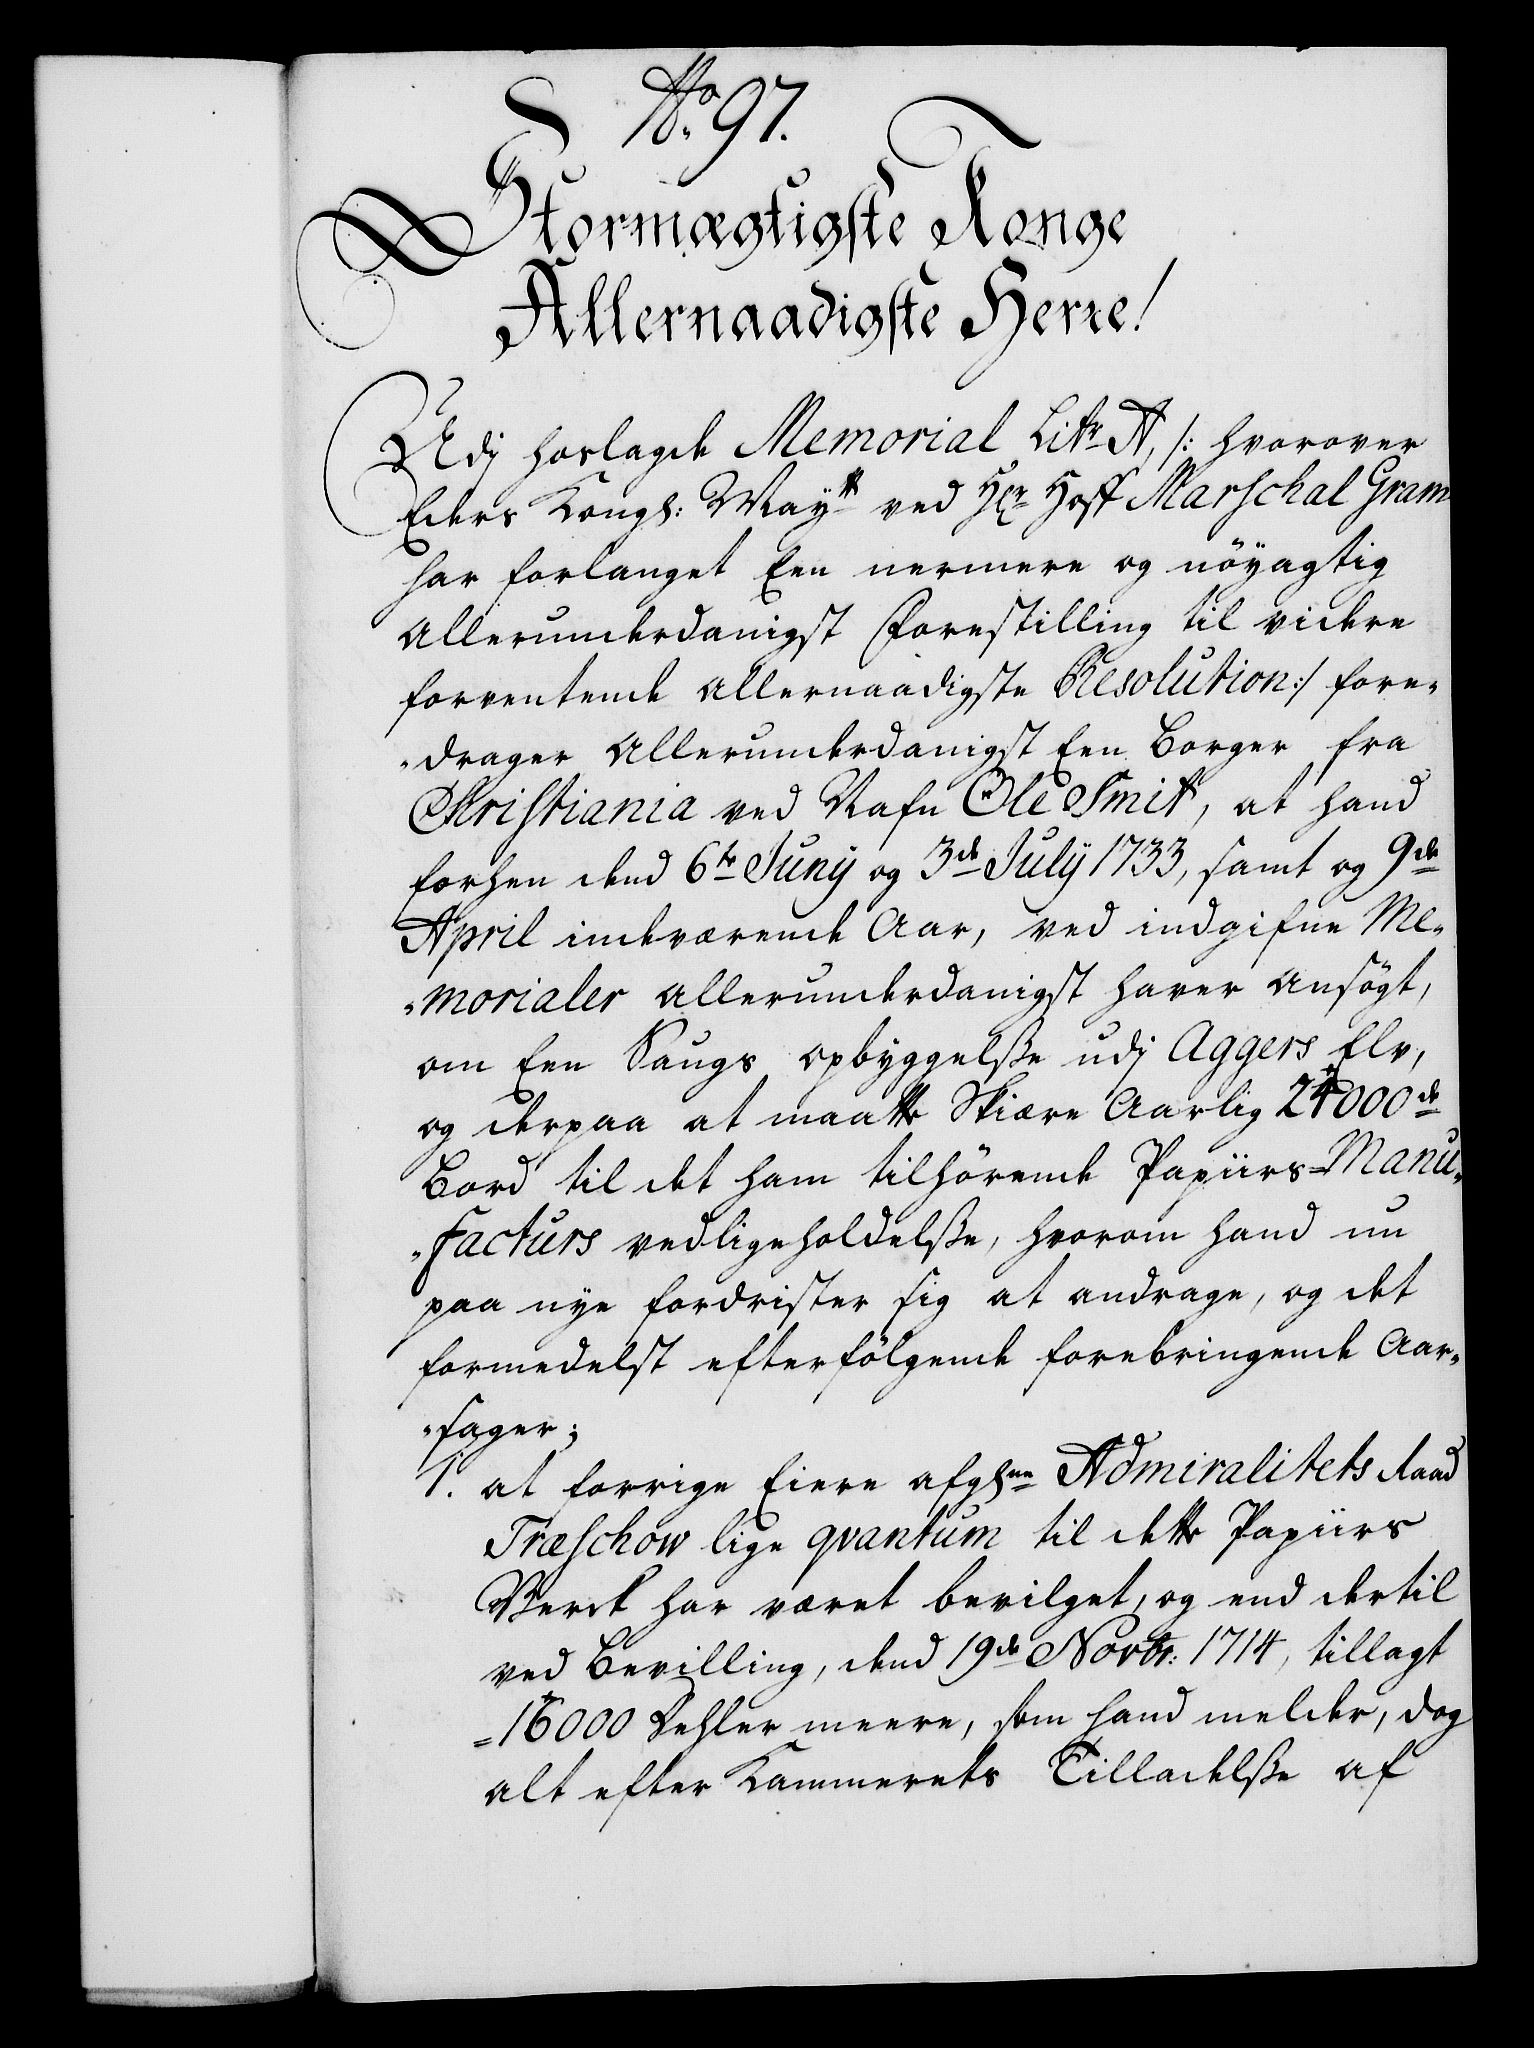 No. 97.
Stormægtigste Konge
Allernaadigste Herre!
Udj hoslagde Memorial Litr A, /: hvorover
Eders Kongl: May.tt ved Hr Hoff Marschal Gram
har forlanget Een nermere og nöyagtig
allerunderdanigst Forestilling til videre
forventende allernaadigste Resolution :/ fore-
-drager allerunderdanigst Een Borger fra
Christiania ved Nafn Ole Smit, at hand
forhen dend 6te Juny og 3de July 1733, samt og 9de
April indeværende Aar, ved indgifne Me-
-morialer allerunderdanigst haver ansögt,
om Een Saugs opbyggelsse udj Aggers Elv,
og derpaa at maatte Skiære Aarlig 24000de
Bord til det ham tilhörende Papiirs-Manu-
-facturs vedligeholdelsse, hvorom hand nu
paa nye fordrister sig at andrage, og det
formedelst efterfölgende forebringende Aar-
-sager;
1. at forrige Eiere afgl.ne Admiralitets Raad
Træschow lige qvantum til dette Papiirs
Werck har været bevilget, og end dertil
ved Bevilling, dend 19de Novbr: 1714, tillagt
=16000 Dehler meere, som hand melder, dog
alt efter Kammerets Tilladelsse af